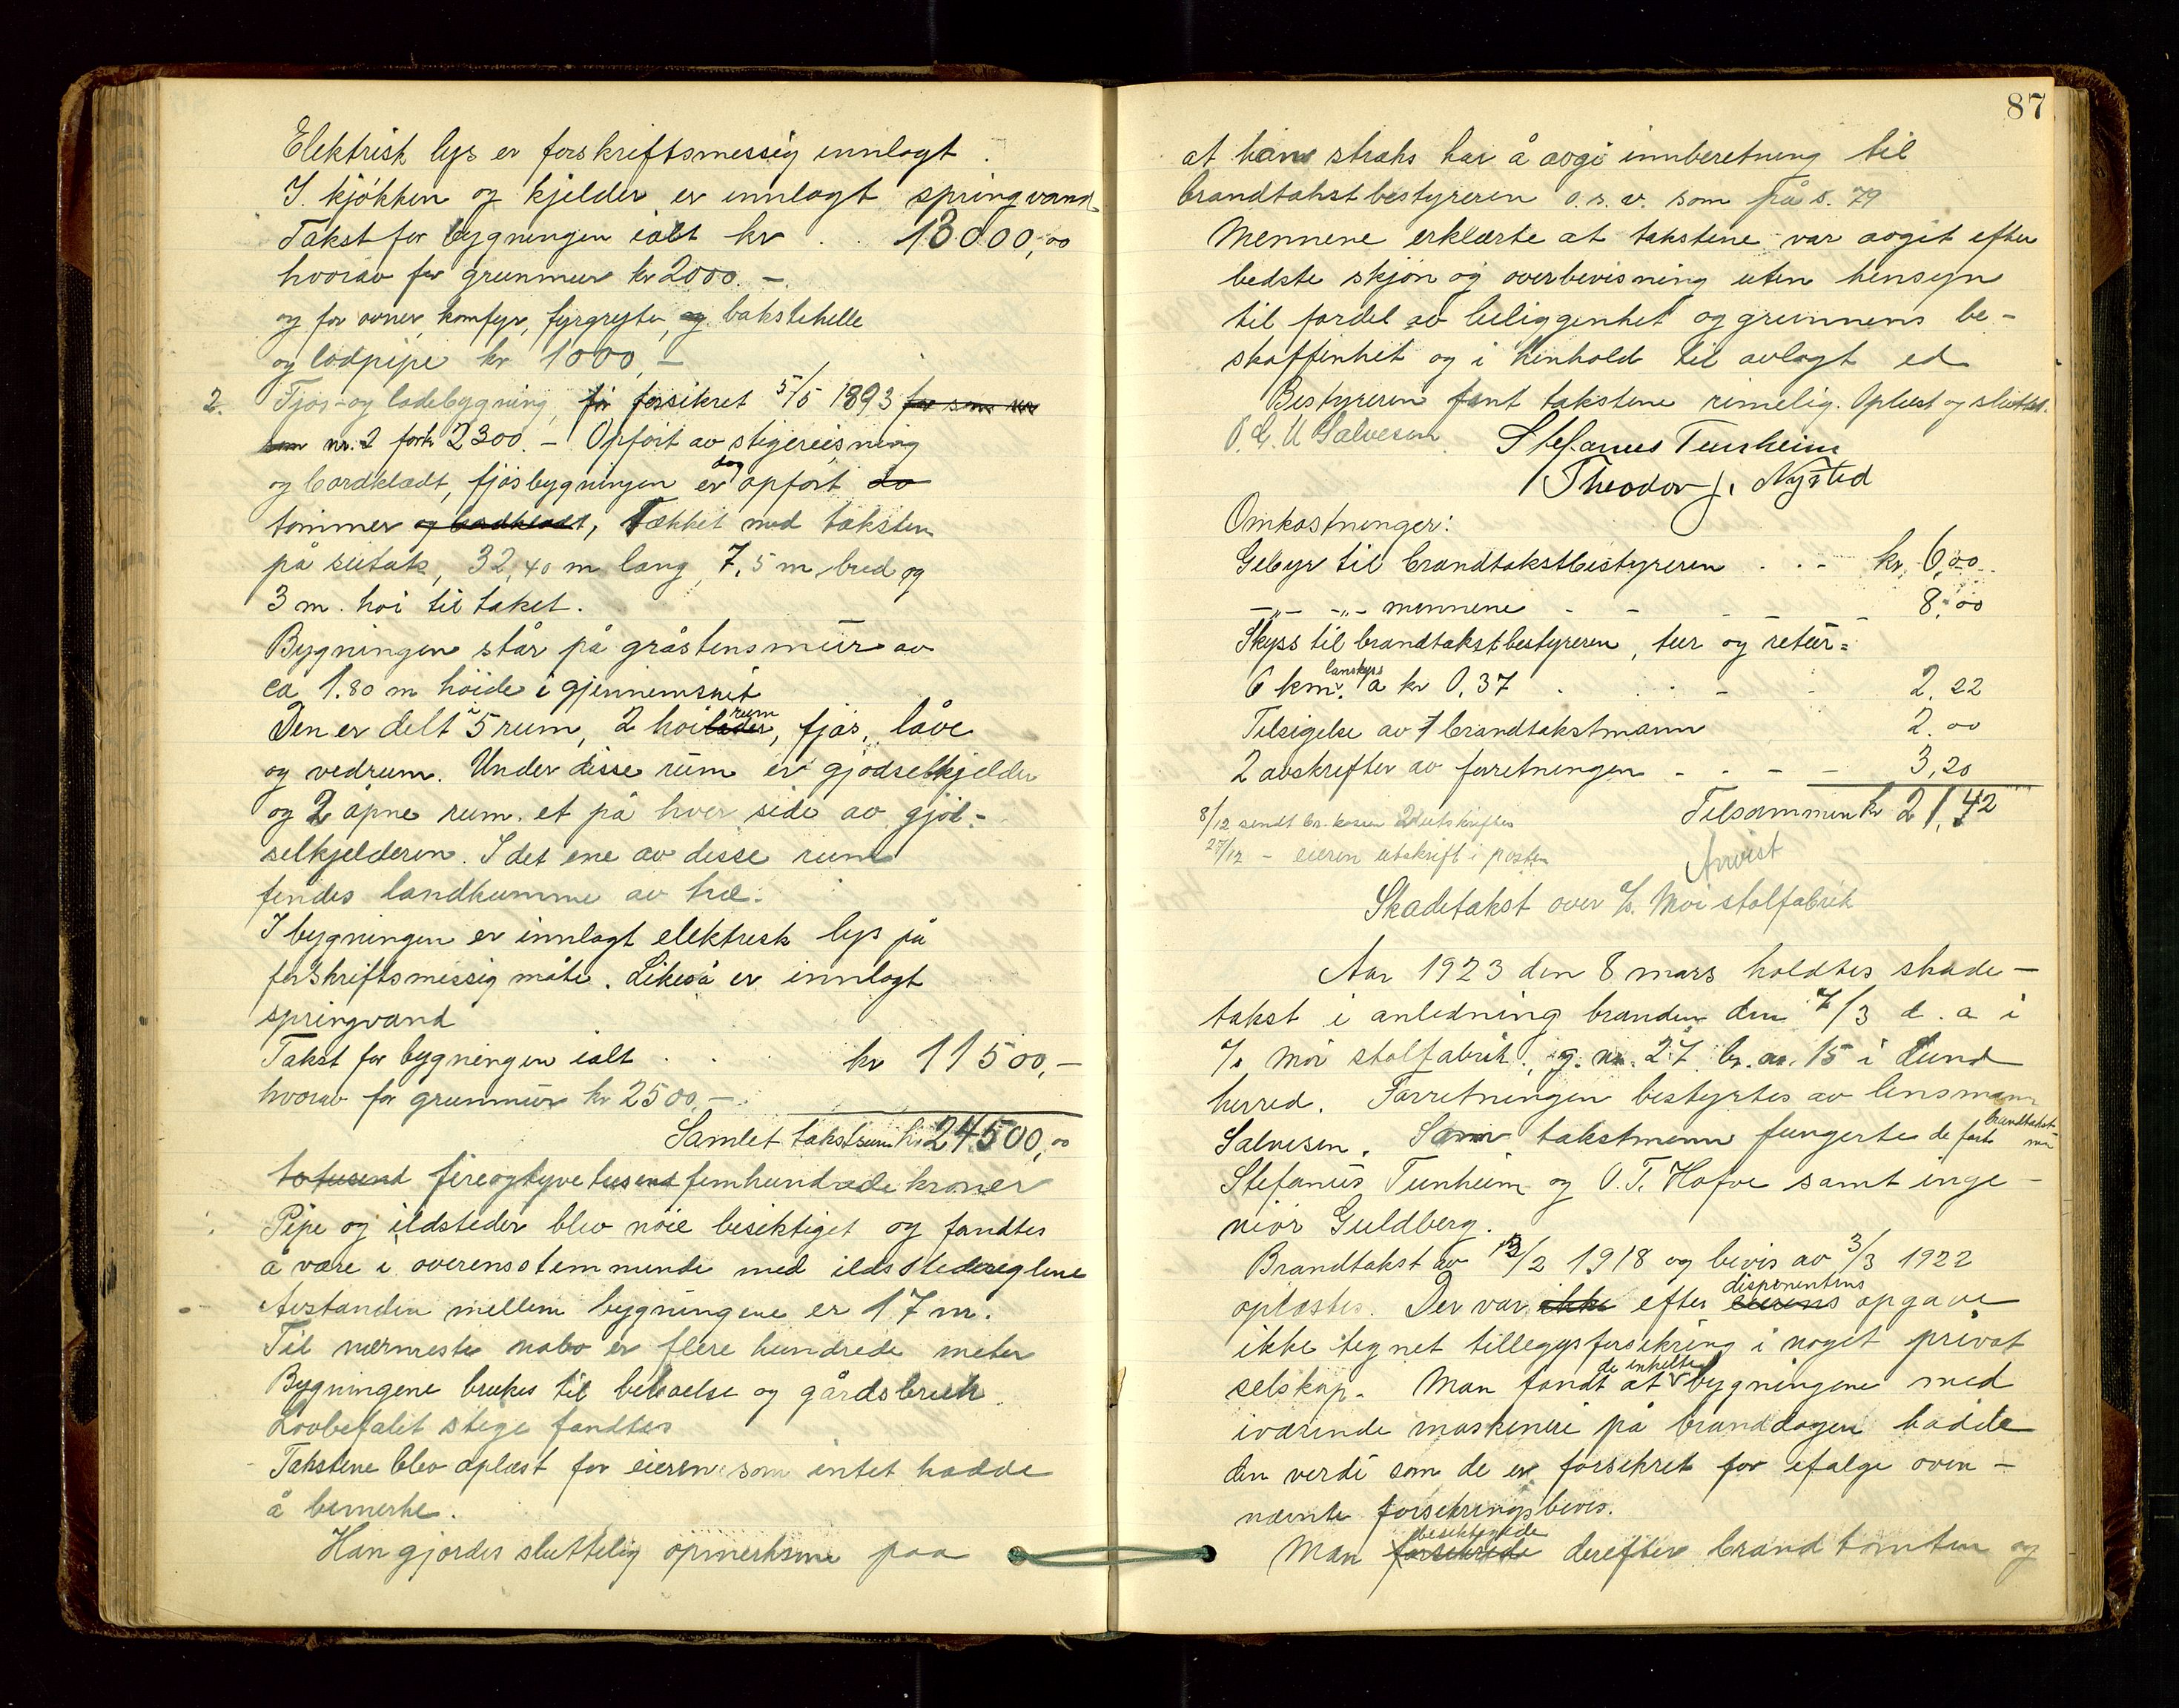 Elektrisk lys er forskriftsmessig innlagt.
I kjøkken og kjelder er innlagt springvand
Takst for bygningen ialt kr . . 13000,00
hvorav for grunmur kr 2000.-
og for ovner, komfyr, fyrgryte, og bakstehelle
og lodpipe kr 1000,-
2. Fjøs- og ladebygning, før forsikret 5/5 1893 for som nr
som nr. 2 for kr 2300.- Opført av stigereisning
og bordklædt, fjøsbygningen er dog opført av
tømmer og bordklædt, Tækket med taksten
på sutak, 32,40 m lang, 7,5 m bred og
3 m. høi til taket.
Bygningen står på gråstensmur av
ca 1.80 m høide i gjennemsnit
Den er delt i 5 rum, 2 høilader rum, fjøs, låve
og vedrum. Under disse rum er gjødselkjelder
og 2 åpne rum, et på hver side av gjød-
selkjelderen. I det ene av disse rum
findes landkumme av træ.
I bygningen er innlagt elektrisk lys på
forskriftsmessig måte. Likeså er innlagt
springvand
Takst for bygningen ialt . . kr 11500,-
hvorav for grunmur kr 2500,-
Samlet takstsum kr 24500,00
totusend fireogtyve tusend femhundrede kroner
Pipe og ildsteder blev nøie besiktiget og fandtes
å være i overensstemmende med ildsstedsreglene
Avstanden mellem bygningene er 17 m.
Til nærmeste nabo er flere hundrede meter
Bygningene brukes til beboelse og gårdsbruk.
Lovbefalet stige fandtes
Takstene blev oplæst for eieren som intet hadde
å bemerke.
Han gjordes sluttelig opmerksom paa
87
at han straks har å avgi innberetning til
brandtakstbestyreren o.s.v. som på s. 79
Mennene erklærte at takstene var avgit efter
bedste skjøn og overbevisning uten hensyn
til fordel av beliggenhet og grunnens be-
skaffenhet og i henhold til avlagt ed
Bestyreren fant takstene rimelig. Oplæst og sluttet.
O. E. U Salvesen Stefanus Tunheim
Theodor J. Nysted
Omkostninger:
Gebyr til brandtakstbestyreren . . - kr. 6,00
-„- -„- mennene - - - - 8,00
Skyss til brandtakstbestyreren, tur og retur =
6 km. lanskyss a kr 0,37 . . . - - 2.22
Tilsigelse av 1 brandtakstmann 2.00
2 avskrifter av forretningen - - - - 3,20
Tilsammen kr 21,42
8/12 sendt br.kassen 2 utskrifter
27/12 - eieren utskrift i posten
Avvist
Skadetakst over A/S. Moi stolfabrik
Aar 1923 den 8 mars holdtes skade-
takst i anledning branden den 7/3 d. a i
A/S Moi stolfabrik, g. nr. 27 br. nr. 15 i Lund
herred. Forretningen bestyrtes av lensmann
Salvesen. Som takstmenn fungerte de faste brandtakstmenn
Stefanus Tunheim og O. T. Hofve samt inge-
niør Guldberg.
Brandtakst av 13/2 1918 og bevis av 3/3 1922
oplæstes. Der var ikke efter eierens disponentens opgave
ikke tegnet tilleggsforsikring i noget privat
selskap. Man fandt at de enkelte bygningene med
iværende maskineri på branddagen hadde
den verdi som de er forsikret for ifølge oven-
nævnte forsikringsbevis.
Man forsikrede besiktigede derefter brandtomten og